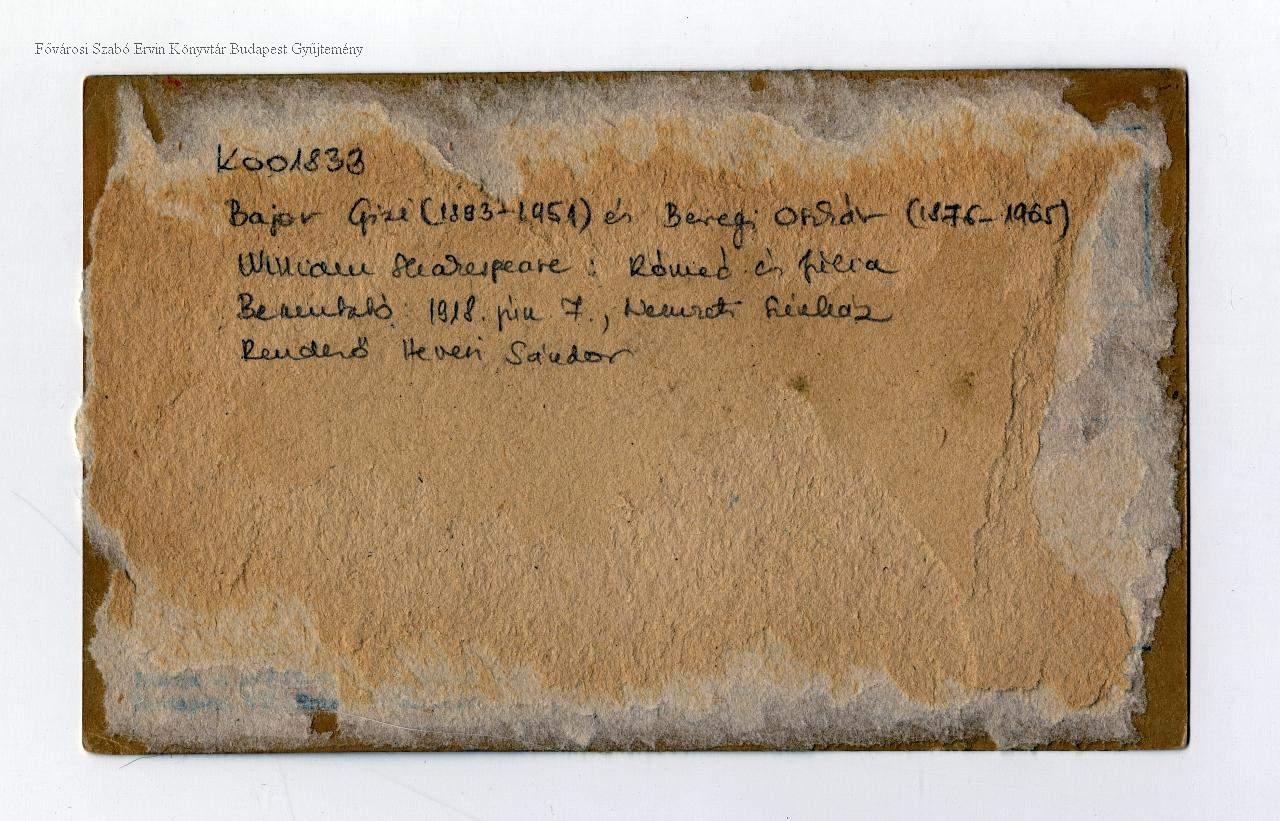 Fővárosi Szabó Ervin Könyvtár Budapest Gyűjtemény
K001833
Bajor Gizi (1893-1951) és Beregi Oszkár (1876-1965)
William Shakespeare: Rómeó és Júlia
Bemutató: 1918. jún 7., Nemzeti Színház
Rendező Hevesi Sándor